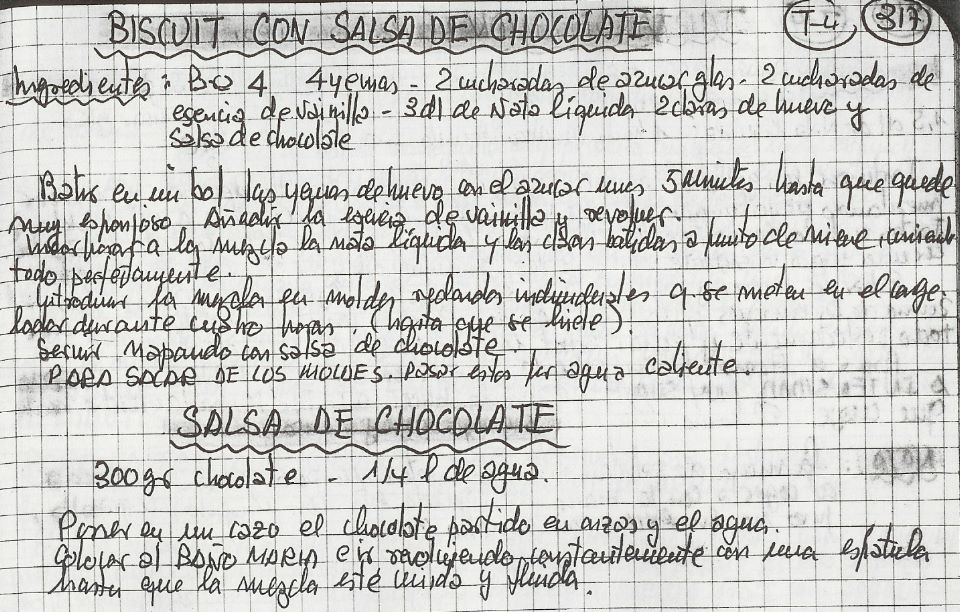 BISCUIT CON SALSA DE CHOCOLATE T-4 317
Ingredientes: 4 4 yemas - 2 cucharadas de azucar glas - 2 cucharadas de
esencia de vainilla - 3 dl de Nata líquida 2 claras de huevo y
salsa de chocolate
Batir en un bol las yemas de huevo con el azucar unos 5 minutos hasta que quede
muy esponjoso. Añadir la esencia de vainilla y revolver.
Incorporar a la mezcla la nata líquida y las claras batidas a punto de nieve,
todo perfectamente.
Introducir la mezcla en moldes redondos individuales q. se meten en el conge
lador durante cuatro horas. (hasta que se hiele).
Servir napando con salsa de chocolate.
PARA SACAR DE LOS MOLDES. pasar estos por agua caliente.
SALSA DE CHOCOLATE
300 grs chocolate - 1/4 l de agua.
Poner en un cazo el chocolate partido en onzas y el agua.
Colocar al BAÑO MARIA e ir removiendo constantemente con una espátula
hasta que la mezcla esté unida y fluida.